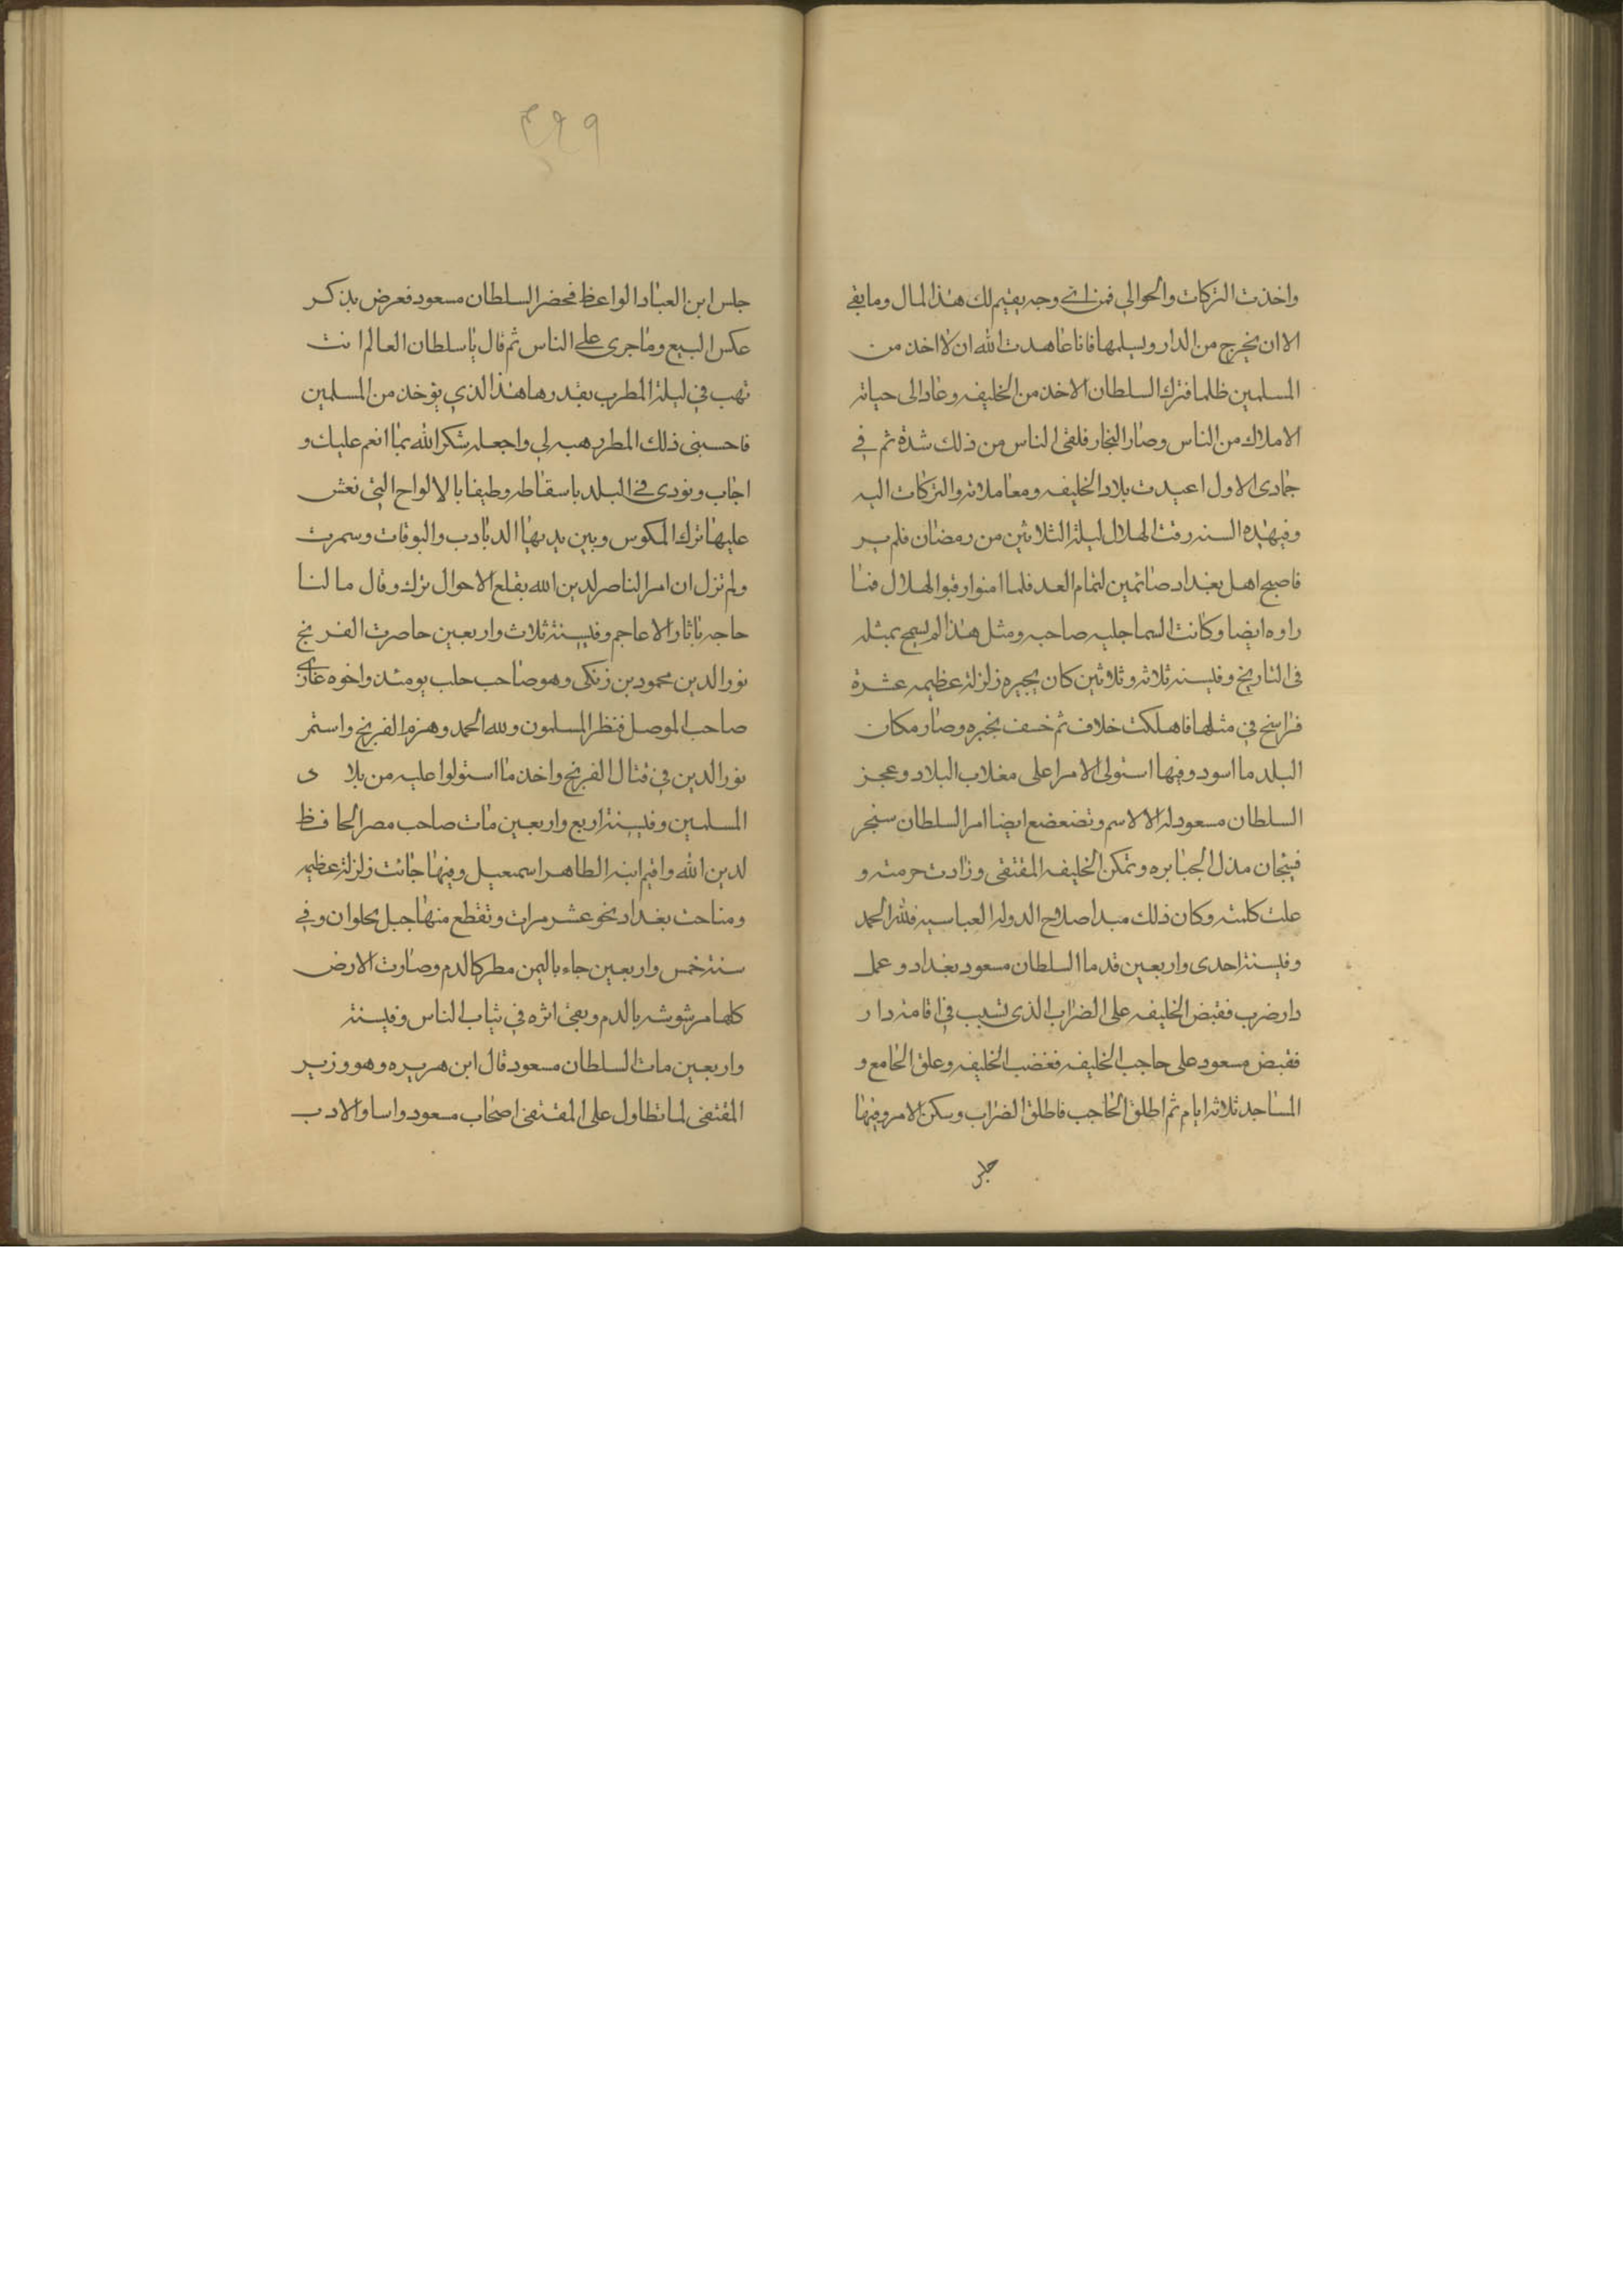 واخذت التركات والجوالي فمن اي وجه يقيم لك هذا المال وما بقي
الا ان يخرج من الدار ويسلمها فانا عاهدت الله ان لا اخذ من
المسلمين ظلما فترك السلطان الاخذ من الخليفه وعاد الى حباته
الاملاك من الناس وصار التجار فلقى الناس من ذلك شدة ثم في
جمادى الاول اعيدت بلاد الخليفه ومعاملاته والتركات اليه
وفيهذه السنه رقت الهلال ليلة الثلاثين من رمضان فلم ير
فاصبح اهل بغداد صائمين لتمام العد فلما امنوا رقبوا الهلال فما
راوه ايضا وكانت السما جليه صاحبه ومثل هذا لم يسمح بمثله
في التاريخ وفيسنه ثلاثه وثلاثين كان بجيره زلزلة عظيمه عشرة
فراسخ في مثلها فاهلكت خلاف ثم خسف بجيره وصار مكان
البلد ما اسود وفيها استولى الامرا على مغلاب البلاد وعجز
السلطان مسعود له الا الاسم وتضعضع ايضا امر السلطان سنجر
فسبحان مذل الجبابره وتمكن الخليفه المقتفى وزادت حرمته و
علت كلمته وكان ذلك مبدا صلاح الدوله العباسيه فلله الحمد
وفيسنة احدى واربعين قدم السلطان مسعود بغداد وعمل
دار ضرب فقبض الخليفه على الضراب الذى تسبب في اقامة دار
فقبض مسعود على حاجب الخليفه فغضب الخليفه وعلق الجامع و
المساجد ثلاثه ايام ثم اطلق الحاجب فاطلق الضراب وسكن الامر وفيها
جلس
٤٩٩
جلس ابن العباد الواعظ فحضر السلطان مسعود فعرض بذكر
عكس البيع وما جرى على الناس ثم قال يا سلطان العالم انت
تهب في ليلة المطرب بقدرها هذا الذي يؤخذ من المسلمين
فاحسبنى ذلك المطرب هبه لي واجعله شكر الله بما انعم عليك و
اجاب ونودى في البلد باسقاطه وطيفا بالالواح التي نعش
عليها ترك المكوس وبين يديها الدبادب والبوقات وسمرت
ولم تزل ان امر الناصر لدين الله بقلع الاحوال ترك وقال ما لنا
حاجه باثار الاعاجم وفيسنة ثلاث واربعين حاصرت الفرنج
نور الدين محمود بن زنكى وهو صاحب حلب يومئذ واخوه غازي
صاحب الموصل فنظر المسلمون ولله الحمد وهزم الفرنج واستمر
نور الدين في قتال الفرنج واخذ ما استولوا عليه من بلاد
المسلمين وفيسنة اربع واربعين مات صاحب مصر الحافظ
لدين الله واقيم ابنه الطاهر اسمعيل وفيها جائت زلزلة عظيمه
ومناحت بغداد نحو عشر مرات وتقطع منها جبل بحلوان وفي
سنة خمس واربعين جاء باليمن مطر كالدم وصارت الارض
كلها مرشوشه بالدم وبقى اثره في ثياب الناس وفيسنة
واربعين مات السلطان مسعود قال ابن هبيره وهو وزير
المقتفى لما تطاول على المقتفى اصحاب مسعود واساوا الادب